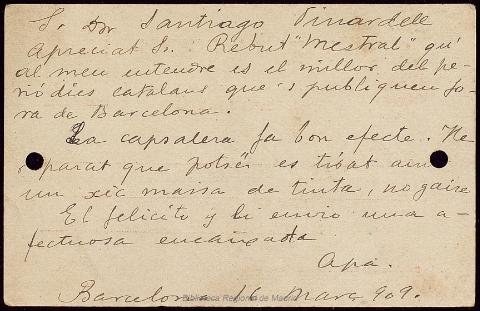 Sr Dn Santiago Vinardell
Apreciat Sr. Rebut "Mestral" qu'
al meu entendre es el millor del pe-
riódics catalans que 's publiquen fo-
ra de Barcelona.
La capsalera fa bon efecte. He
reparat que potsér es tibat amb
un xic massa de tinta, no gaire
El felicito y li envio una a-
fectuosa encaixada
Apa.
Barcelona 16 Març 909.
Biblioteca Regional de Madrid